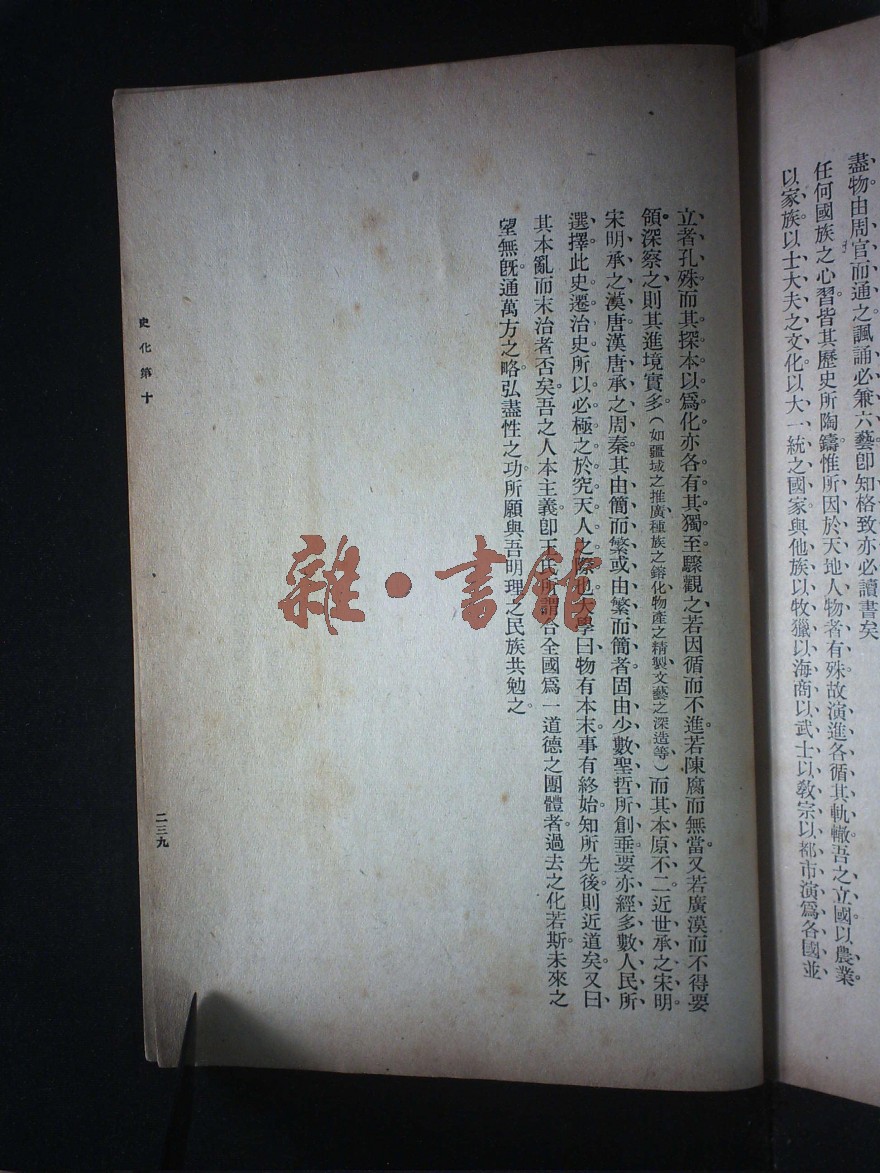 盡物。由周官而通之。諷誦必兼六藝。卽知格致亦必讀書矣
任何國族之心習。皆其歷史所陶鑄。惟所因於天地人物者有殊。故演進各循其軌轍。吾之立國以農業。
以家族。以士大夫之文化。以大一統之國家。與他族以牧獵。以海商。以武士。以敎宗。以都市演爲各國並
立者孔殊。而其探本以爲化。亦各有其獨至。驟觀之。若因循而不進。若陳腐而無當。又若廣漠而不得要
領。深察之。則其進境實多（如疆域之推廣、種族之鎔化、物產之精製、文藝之深造等）而其本原不二。近世承之宋明。
宋明承之漢唐。漢唐承之周秦。其由簡而繁或由繁而簡者。固由少數聖哲所創垂。要亦經多數人民所
選擇。此史遷治史所以必極之於究天人之際也。大學曰。物有本末。事有終始。知所先後。則近道矣。又曰。
其本亂而末治者否矣。吾之人本主義。卽王氏所謂合全國爲一道德之團體者。過去之化若斯。未來之
望無旣。通萬方之略。弘盡性之功。所願與吾明理之民族共勉之。
史化第十
二三九
雜·書館